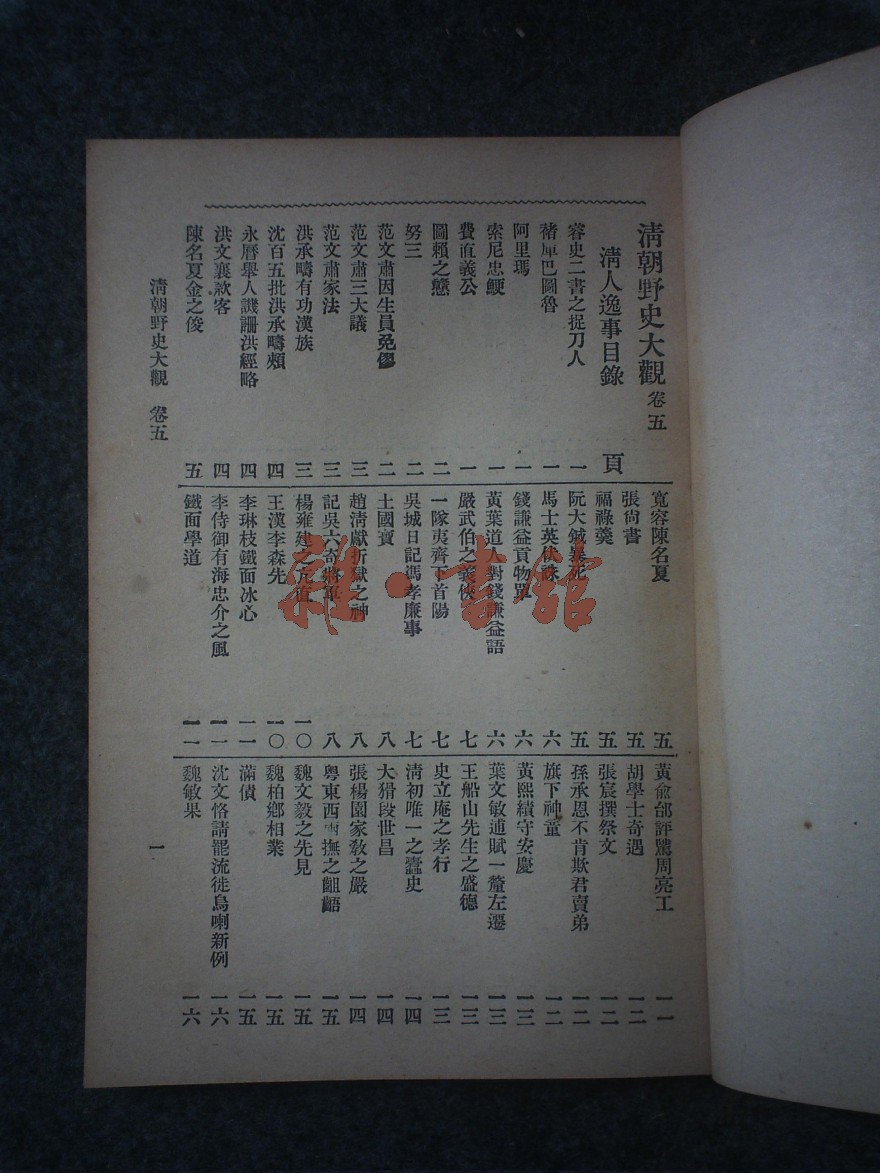 清朝野史大觀 卷五
清人逸事目錄 頁
睿史二書之捉刀人 一
豬犀巴圖魯 一
阿里瑪 一
索尼忠鯁 一
費直義公 一
圖賴之戇 二
努三 二
范文肅因生員免僇 二
范文肅三大議 三
范文肅家法 三
洪承疇有功漢族 三
沈百五批洪承疇頰 四
永曆舉人譏訕洪經略 四
洪文襄款客 四
陳名夏金之俊 五
寬容陳名夏 五
張尙書 五
福祿羹 五
阮大鋮暴死 五
馬士英伏誅 六
錢謙益貢物單 六
黃葉道人對錢謙益語 六
嚴武伯之義俠 七
一隊夷齊下首陽 七
吳城日記馮孝廉事 七
土國寶 八
趙淸獻折獄之神 八
記吳六奇將軍 八
楊雍建之亢直 一〇
王漢李森先 一〇
李琳枝鐵面冰心 一一
李侍御有海忠介之風 一一
鐵面學道 一一
黃兪邰評騭周亮工 一一
胡學士奇遇 一二
張宸撰祭文 一二
孫承恩不肯欺君賣弟 一二
旗下神童 一二
黃熙績守安慶 一三
葉文敏逋賦一釐左遷 一三
王船山先生之盛德 一三
史立庵之孝行 一三
淸初唯一之蠹史 一四
大猾段世昌 一四
張楊園家敎之嚴 一四
粵東西兩撫之齟齬 一五
魏文毅之先見 一五
魏柏鄕相業 一五
滿債 一五
沈文恪請罷流徙烏喇新例 一六
魏敏果 一六
清朝野史大觀 卷五
一
雜·書館